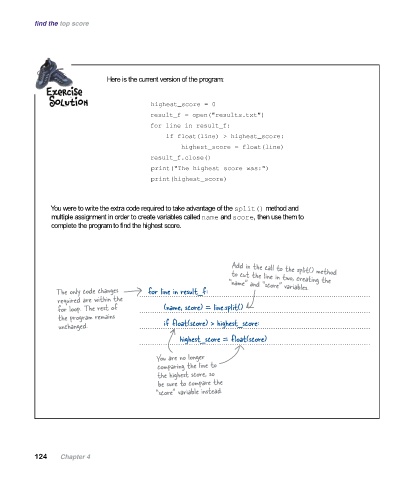 find the top score
Exercise
Solution
Here is the current version of the program:
highest_score = 0
result_f = open("results.txt")
for line in result_f:
if float(line) > highest_score:
highest_score = float(line)
result_f.close()
print("The highest score was:")
print(highest_score)
You were to write the extra code required to take advantage of the split() method and
multiple assignment in order to create variables called name and score, then use them to
complete the program to find the highest score.
Add in the call to the split() method
to cut the line in two, creating the
"name" and "score" variables.
The only code changes
required are within the
for loop. The rest of
the program remains
unchanged.
for line in result_f:
(name, score) = line.split()
if float(score) > highest_score:
highest_score = float(score)
You are no longer
comparing the line to
the highest score, so
be sure to compare the
"score" variable instead.
124 Chapter 4